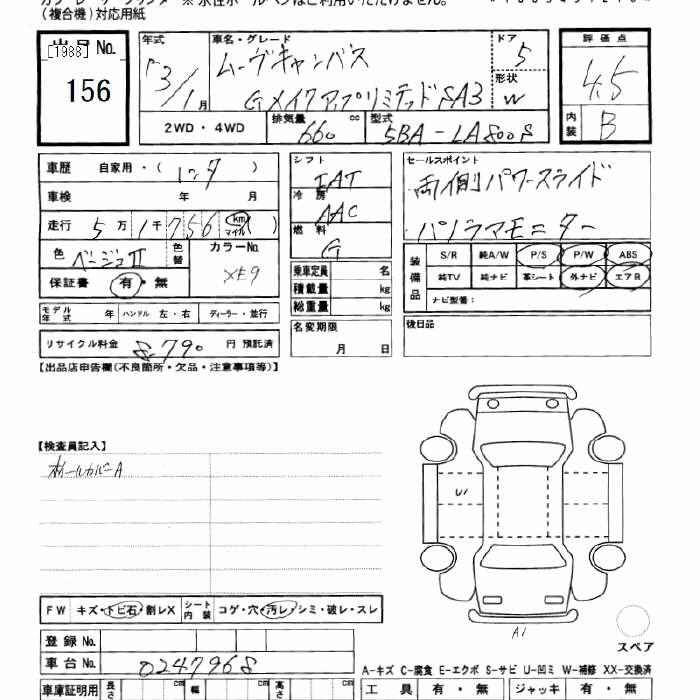 (複合機)対応用紙
出品No.
[1988]
156
年式 車名・グレード ドア 評価点
R3/1月 ムーヴキャンバス 5 4.5
Gメイクアップリミテッド SA3 形状 W
2WD・4WD 排気量 660 cc 型式 5BA-LA800S 内装 B
車歴 自家用・(レンタ)
車検 年 月
走行 5万1千756 km マイル ( )
色 ベージュII 色替 カラーNo. XE9
保証書 有・無
モデル年式 年 ハンドル 左・右 ディーラー・並行
リサイクル料金 8,790 円 預託済
シフト IAT
冷房 AAC
燃料 G
乗車定員 名
積載量 kg
総重量 kg
名変期限
月 日
セールスポイント
両側パワースライド
パノラマモニター
装備品 S/R 純A/W P/S P/W ABS
純TV 純ナビ 革シート 外ナビ エアB
ナビ型番:
後日品
【出品店申告欄(不良箇所・欠品・注意事項等)】
【検査員記入】
ホイールカバーA
U1
A1
スペア
FW キズ・トビ石・割レX シート内装 コゲ・穴・汚レ・シミ・破レ・スレ
登録No.
車台No. 0247968
A-キズ C-腐食 E-エクボ S-サビ U-凹ミ W-補修 XX-交換済
車庫証明用 長さ cm 幅 cm 高さ cm 工具 有・無 ジャッキ 有・無